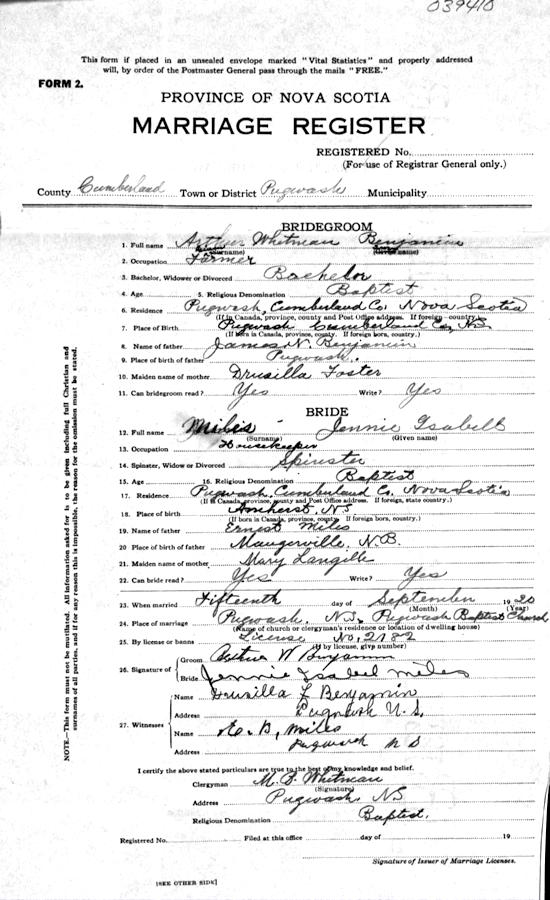 039410
This form if placed in an unsealed envelope marked "Vital Statistics" and properly addressed
will, by order of the Postmaster General pass through the mails "FREE."
FORM 2.
PROVINCE OF NOVA SCOTIA
MARRIAGE REGISTER
REGISTERED No.
(For use of Registrar General only.)
County Cumberland Town or District Pugwash Municipality
BRIDEGROOM
1. Full name Arthur Whitman Benjamin
(Surname) (Given name)
2. Occupation Farmer
3. Bachelor, Widower or Divorced Bachelor
4. Age 5. Religious Denomination Baptist
6. Residence Pugwash, Cumberland Co. Nova Scotia
(If in Canada, province, county and Post Office address. If foreign - country.)
7. Place of Birth Pugwash Cumberland Co, N.S
(If born in Canada, province, county. If foreign born, country.)
8. Name of father James N. Benjamin
9. Place of birth of father Pugwash.
10. Maiden name of mother Drusilla Foster
11. Can bridegroom read? Yes Write? Yes
BRIDE
12. Full name Miles - Jennie Isabell
(Surname) (Given name)
13. Occupation Housekeeper
14. Spinster, Widow or Divorced Spinster
15. Age 16. Religious Denomination Baptist
17. Residence Pugwash, Cumberland Co. Nova Scotia
(If in Canada, province, county and Post Office address. If foreign, state country.)
18. Place of birth Amherst, N.S
(If born in Canada, province, county. If foreign born, country.)
19. Name of father Ernest Miles
20 Place of birth of father Maugerville, N.B.
21. Maiden name of mother Mary Langille
22. Can bride read? Yes Write? Yes
23. When married Fifteenth day of September 1920
(Month) (Year)
24. Place of marriage Pugwash, N.S. Pugwash Baptist Church
(Name of church or clergyman's residence or location of dwelling house)
25. By license or banns License No. 2182
(If by license, give number)
26. Signature of Groom Arthur W Benjamin
Bride Jennie Isabel Miles
27. Witnesses Name Drusilla F Benjamin
Address Pugwash N.S.
Name B. Miles
Address Pugwash N S
I certify the above stated particulars are true to the best of my knowledge and belief.
Clergyman Whitman
(Signature)
Address Pugwash NS
Religious Denomination Baptist.
Registered No. Filed at this office day of 19
Signature of Issuer of Marriage Licenses.
[SEE OTHER SIDE]
NOTE.—This form must not be mutilated. All information asked for is to be given including full Christian and
surnames of all parties, and if for any reason this is impossible, the reason for the omission must be stated.